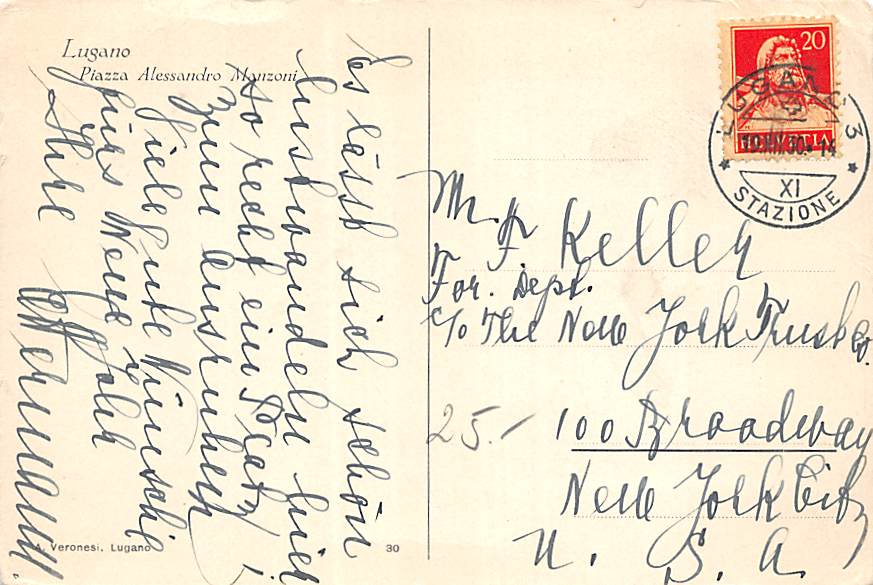 Lugano
Piazza Alessandro Manzoni
Es lässt sich schön
lustwandeln hier
so recht ein Platz
zum ausruhen!
Viele gute Wünsche
fürs Neue Jahr
Ihre
A. Veronesi, Lugano
30
20
HELVETIA
LUGANO 3
XI
STAZIONE
Mr. F. Keller
For. Dept.
c/o The New York Trust Co.
25.-
100 Broadway
New York City
U. S. A.